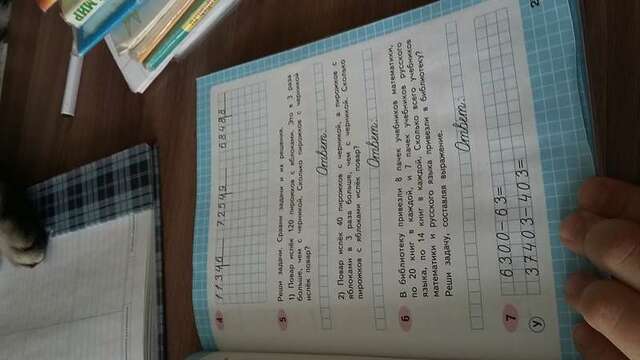 МИР
4
7254 9
5 Реши задачи. Сравни задачи и их решения.
1) Повар испёк 120 пирожков с яблоками. Это в 3 раза
больше, чем с черникой. Сколько пирожков с черникой
испёк повар?
Ответ:
2) Повар испёк 40 пирожков с черникой, а пирожков с
яблоками в 3 раза больше, чем с черникой. Сколько
пирожков с яблоками испёк повар?
Ответ:
6 В библиотеку привезли 8 пачек учебников математики,
по 20 книг в каждой, и 7 пачек учебников русского
языка, по 14 книг в каждой. Сколько всего учебников
математики и русского языка привезли в библиотеку?
Реши задачу, составляя выражение.
Ответ:
7 6300-63=
У 37403-403=
2